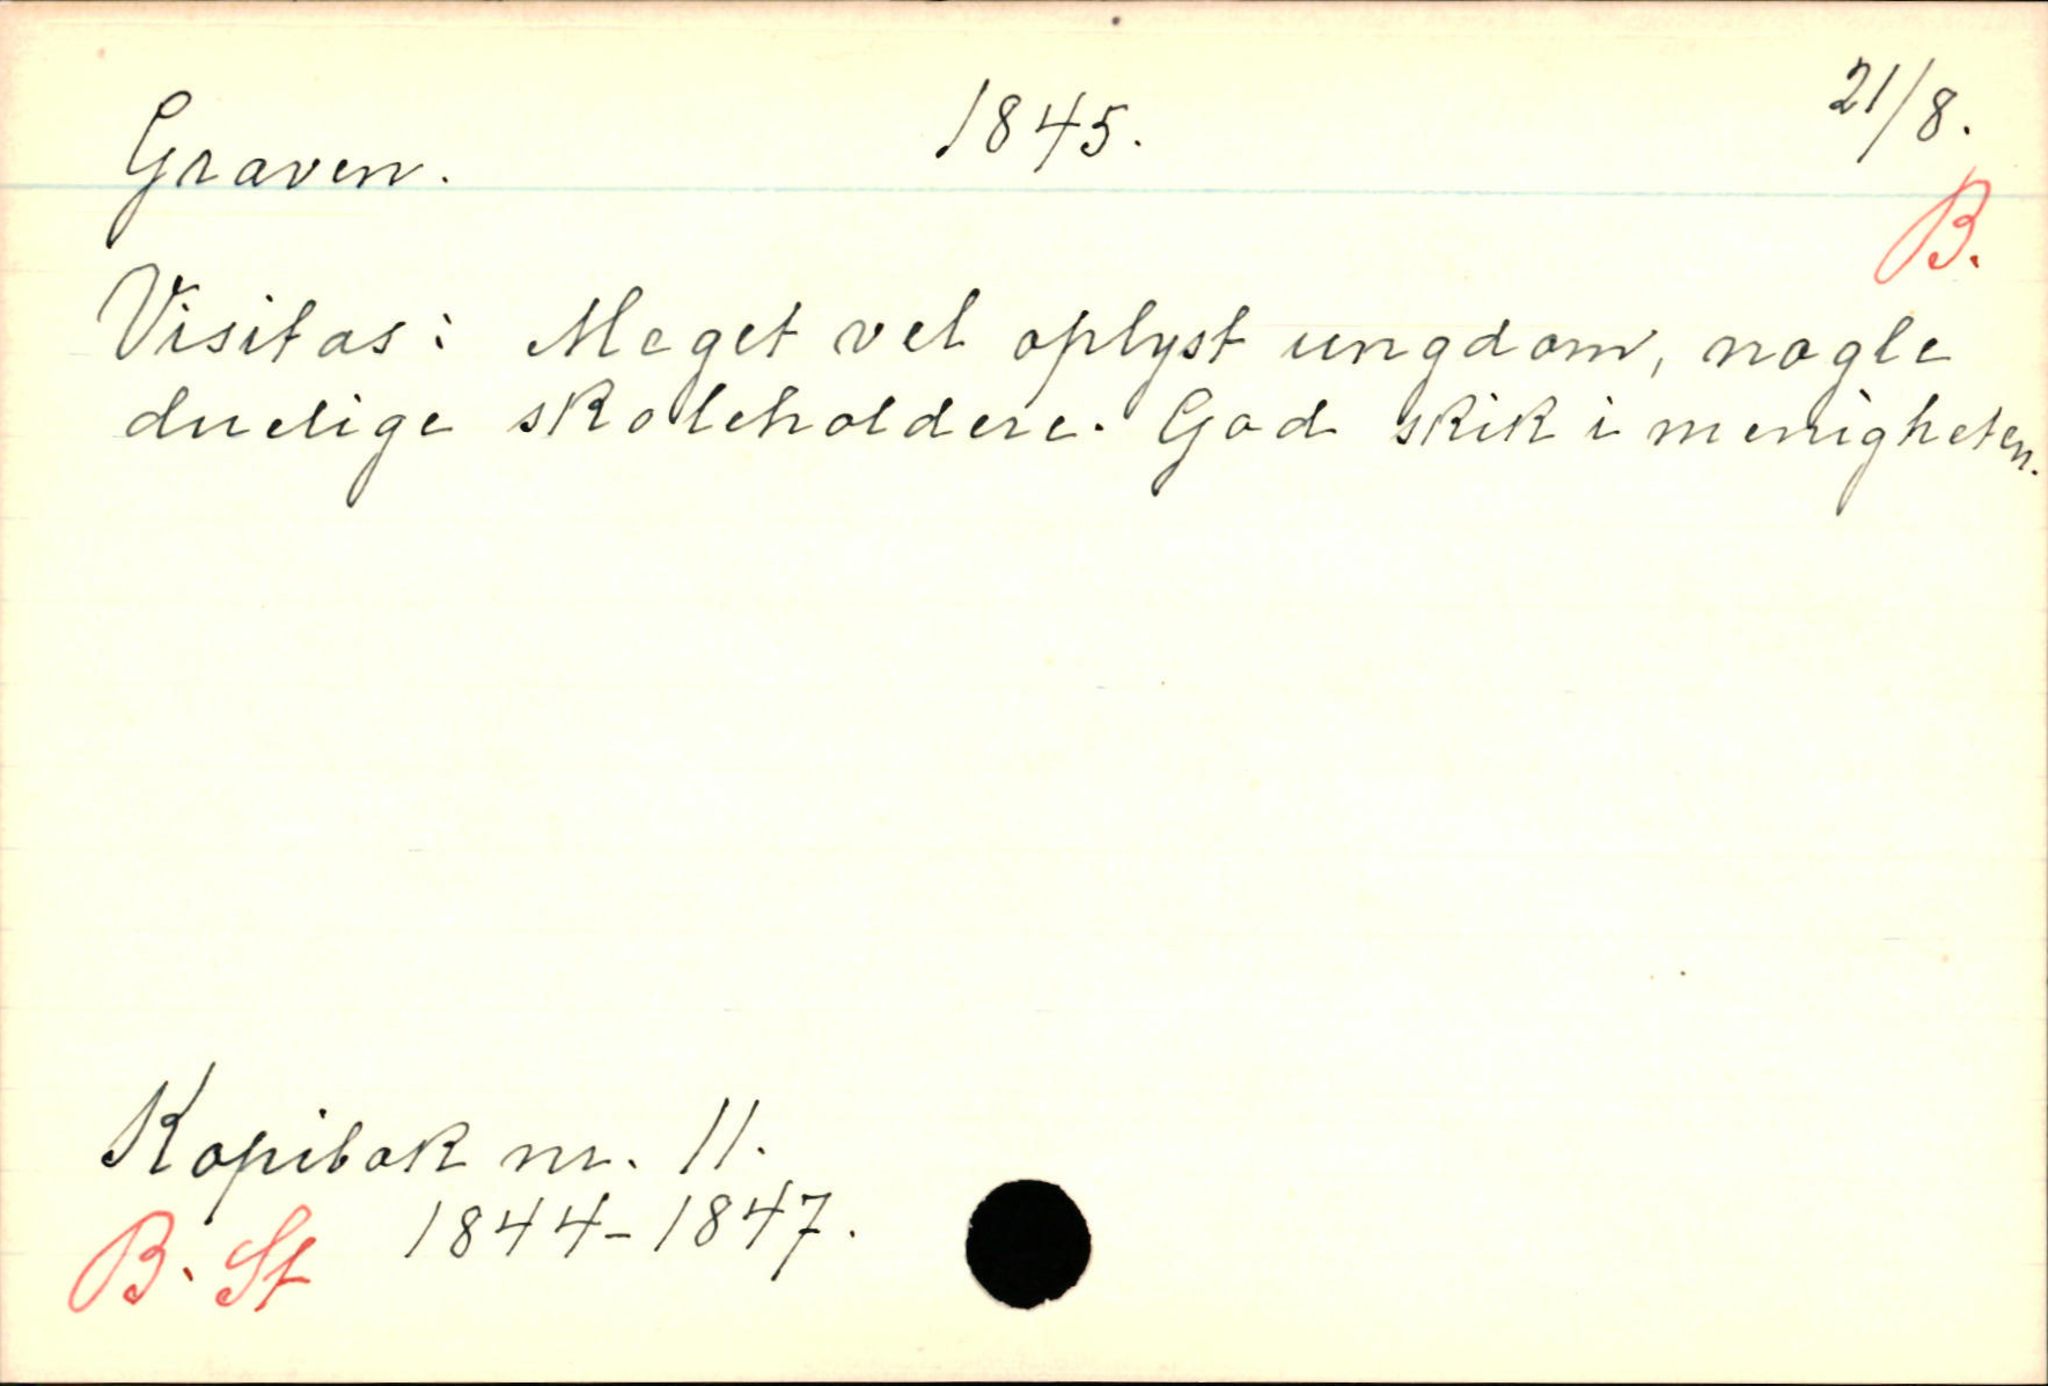 Graven. 1845. 21/8.
B.
Visitas: Meget vel oplyst ungdom, nogle
duelige skoleholdere. God skik i menigheten.
Kopibok nr. 11.
B. St 1844-1847.